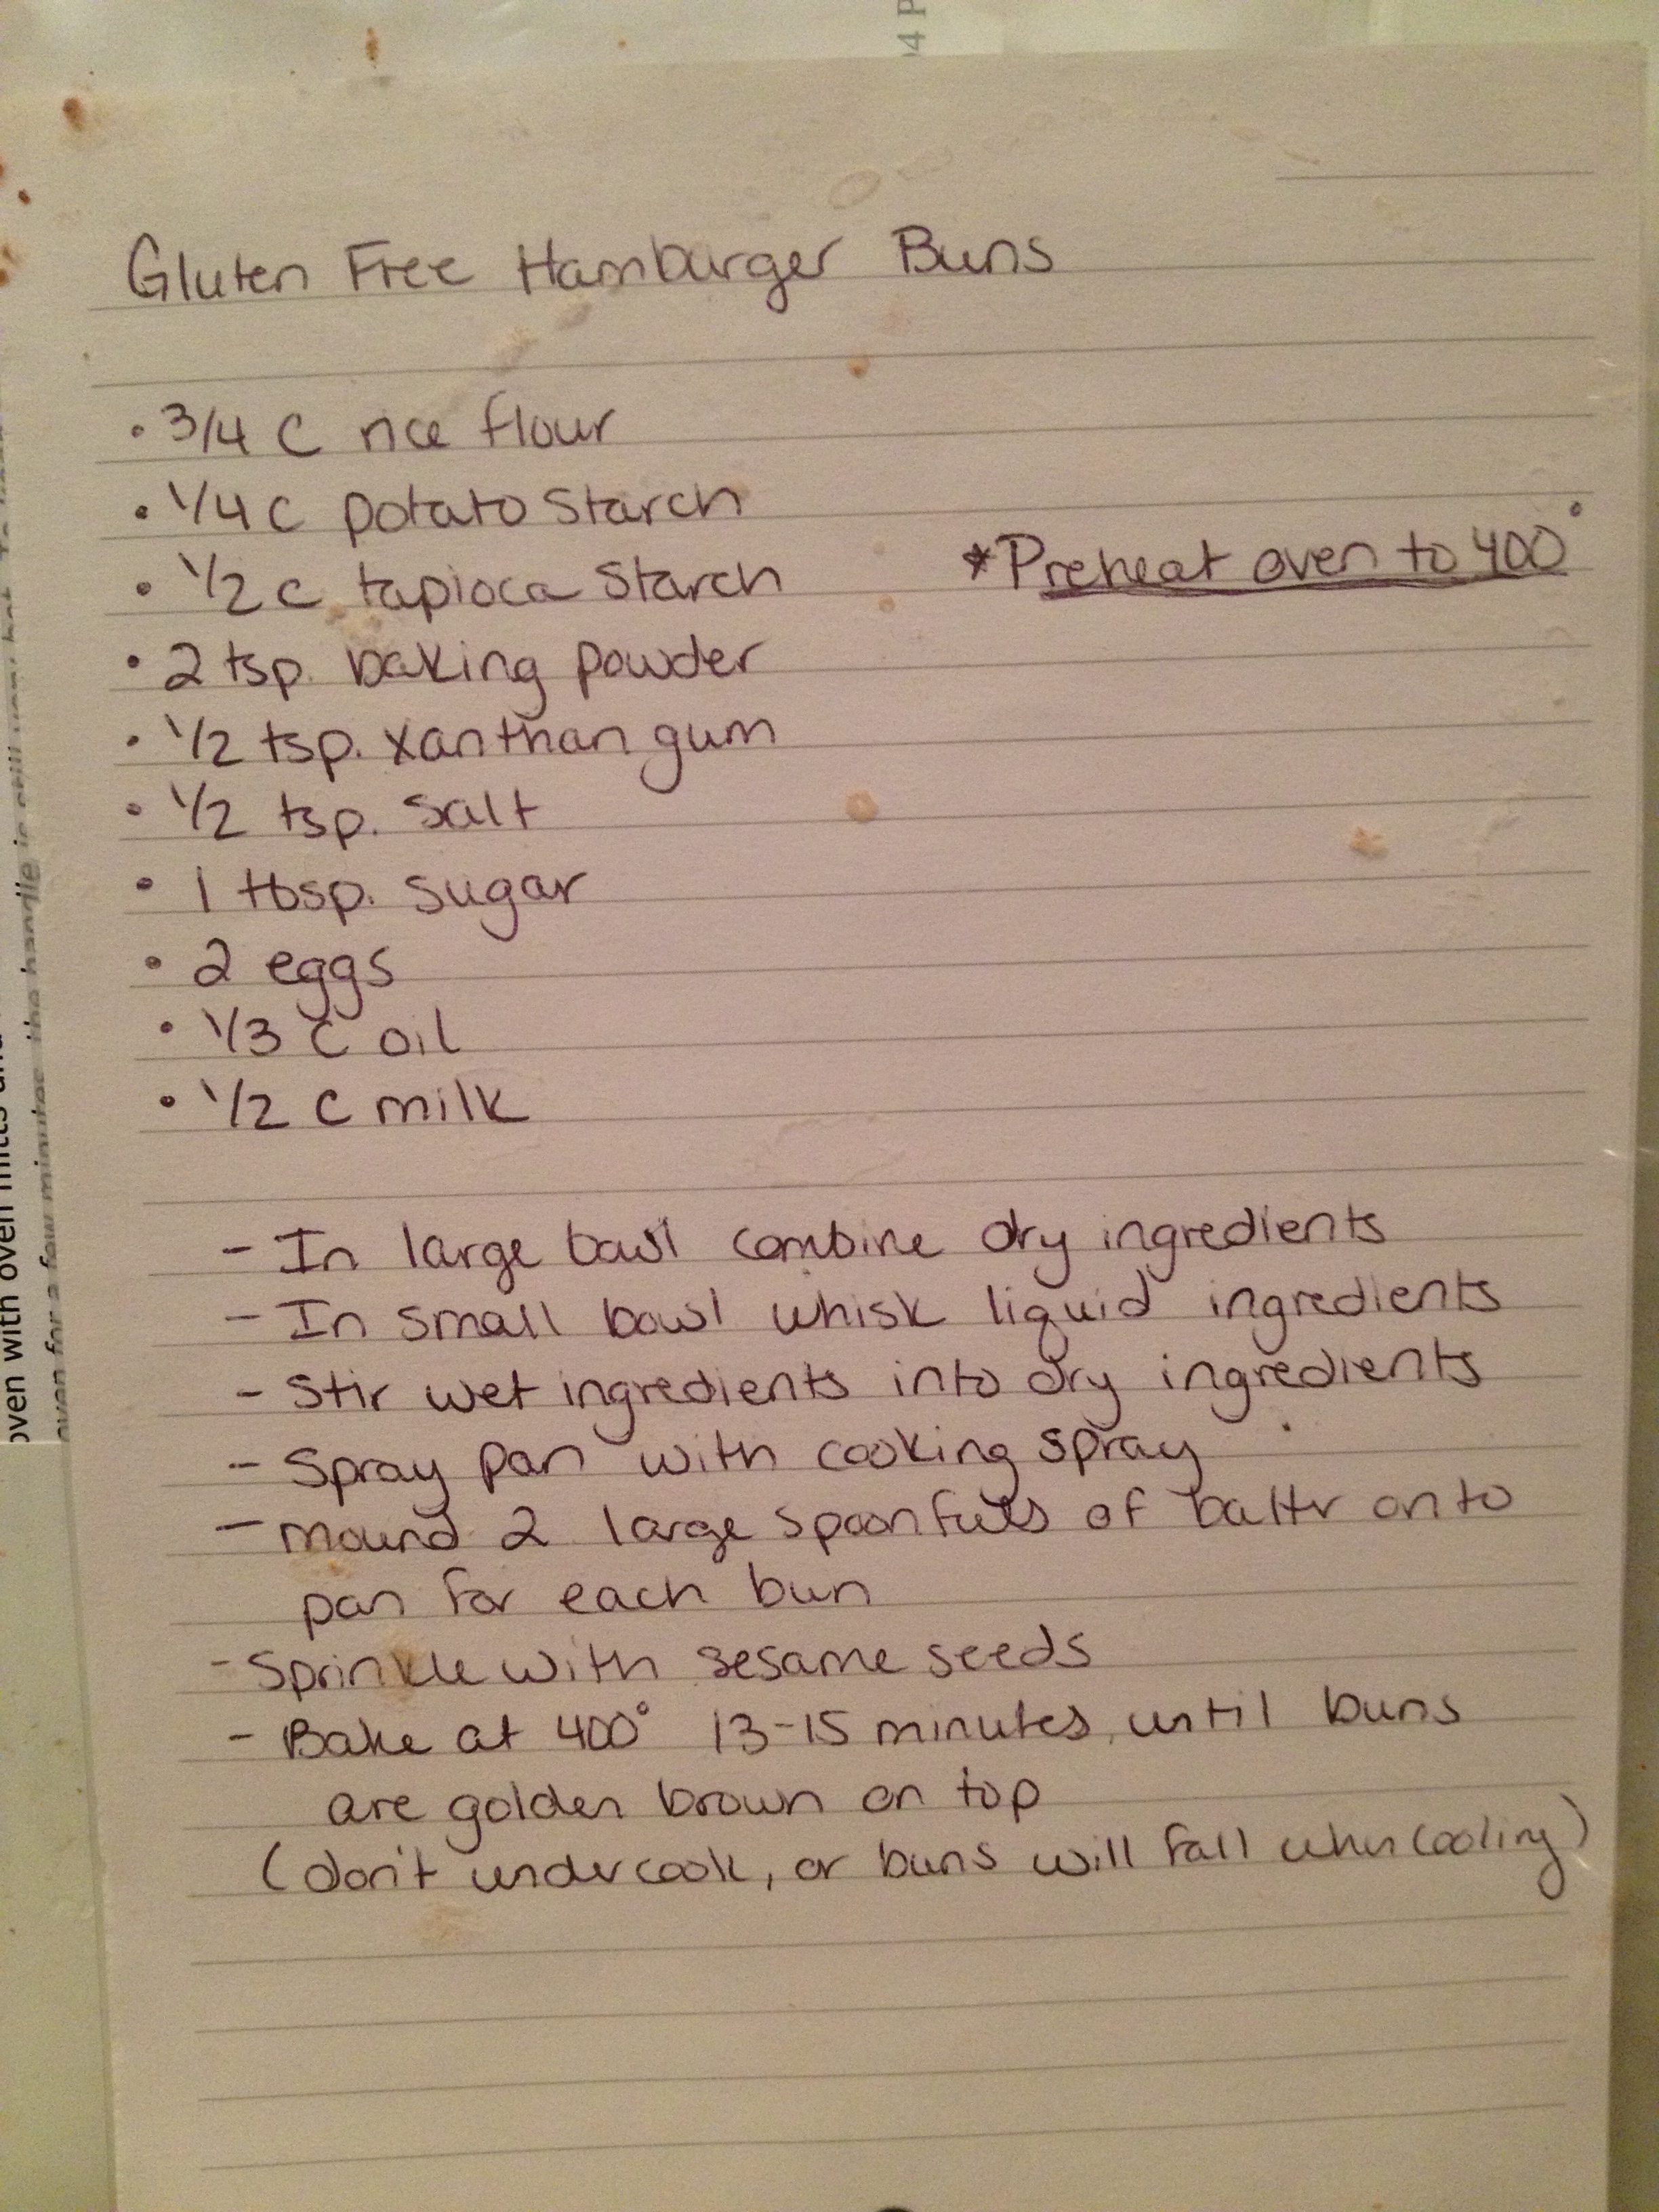 Gluten Free Hamburger Buns
• 3/4 C rice flour
• 1/4 C potato starch
• 1/2 C tapioca starch
*Preheat oven to 400°
• 2 tsp. baking powder
• 1/2 tsp. xanthan gum
• 1/2 tsp. salt
• 1 tbsp. sugar
• 2 eggs
• 1/3 C oil
• 1/2 C milk
- In large bowl combine dry ingredients
- In small bowl whisk liquid ingredients
- Stir wet ingredients into dry ingredients
- Spray pan with cooking spray
- mound 2 large spoonfuls of battr onto
pan for each bun
- Sprinkle with sesame seeds
- Bake at 400° 13-15 minutes, until buns
are golden brown on top
(don't undercook, or buns will fall when cooling)
oven with oven mitts
oven for a few minutes the handle is still
04 P